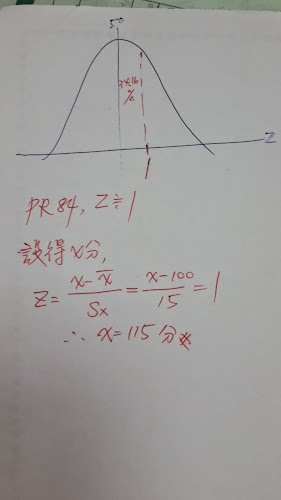 50
34.16
%
Z
1
PR84, Z≒1
設得X分,
Z = (X - X̄)/Sx = (X-100)/15 = 1
∴ X = 115分※